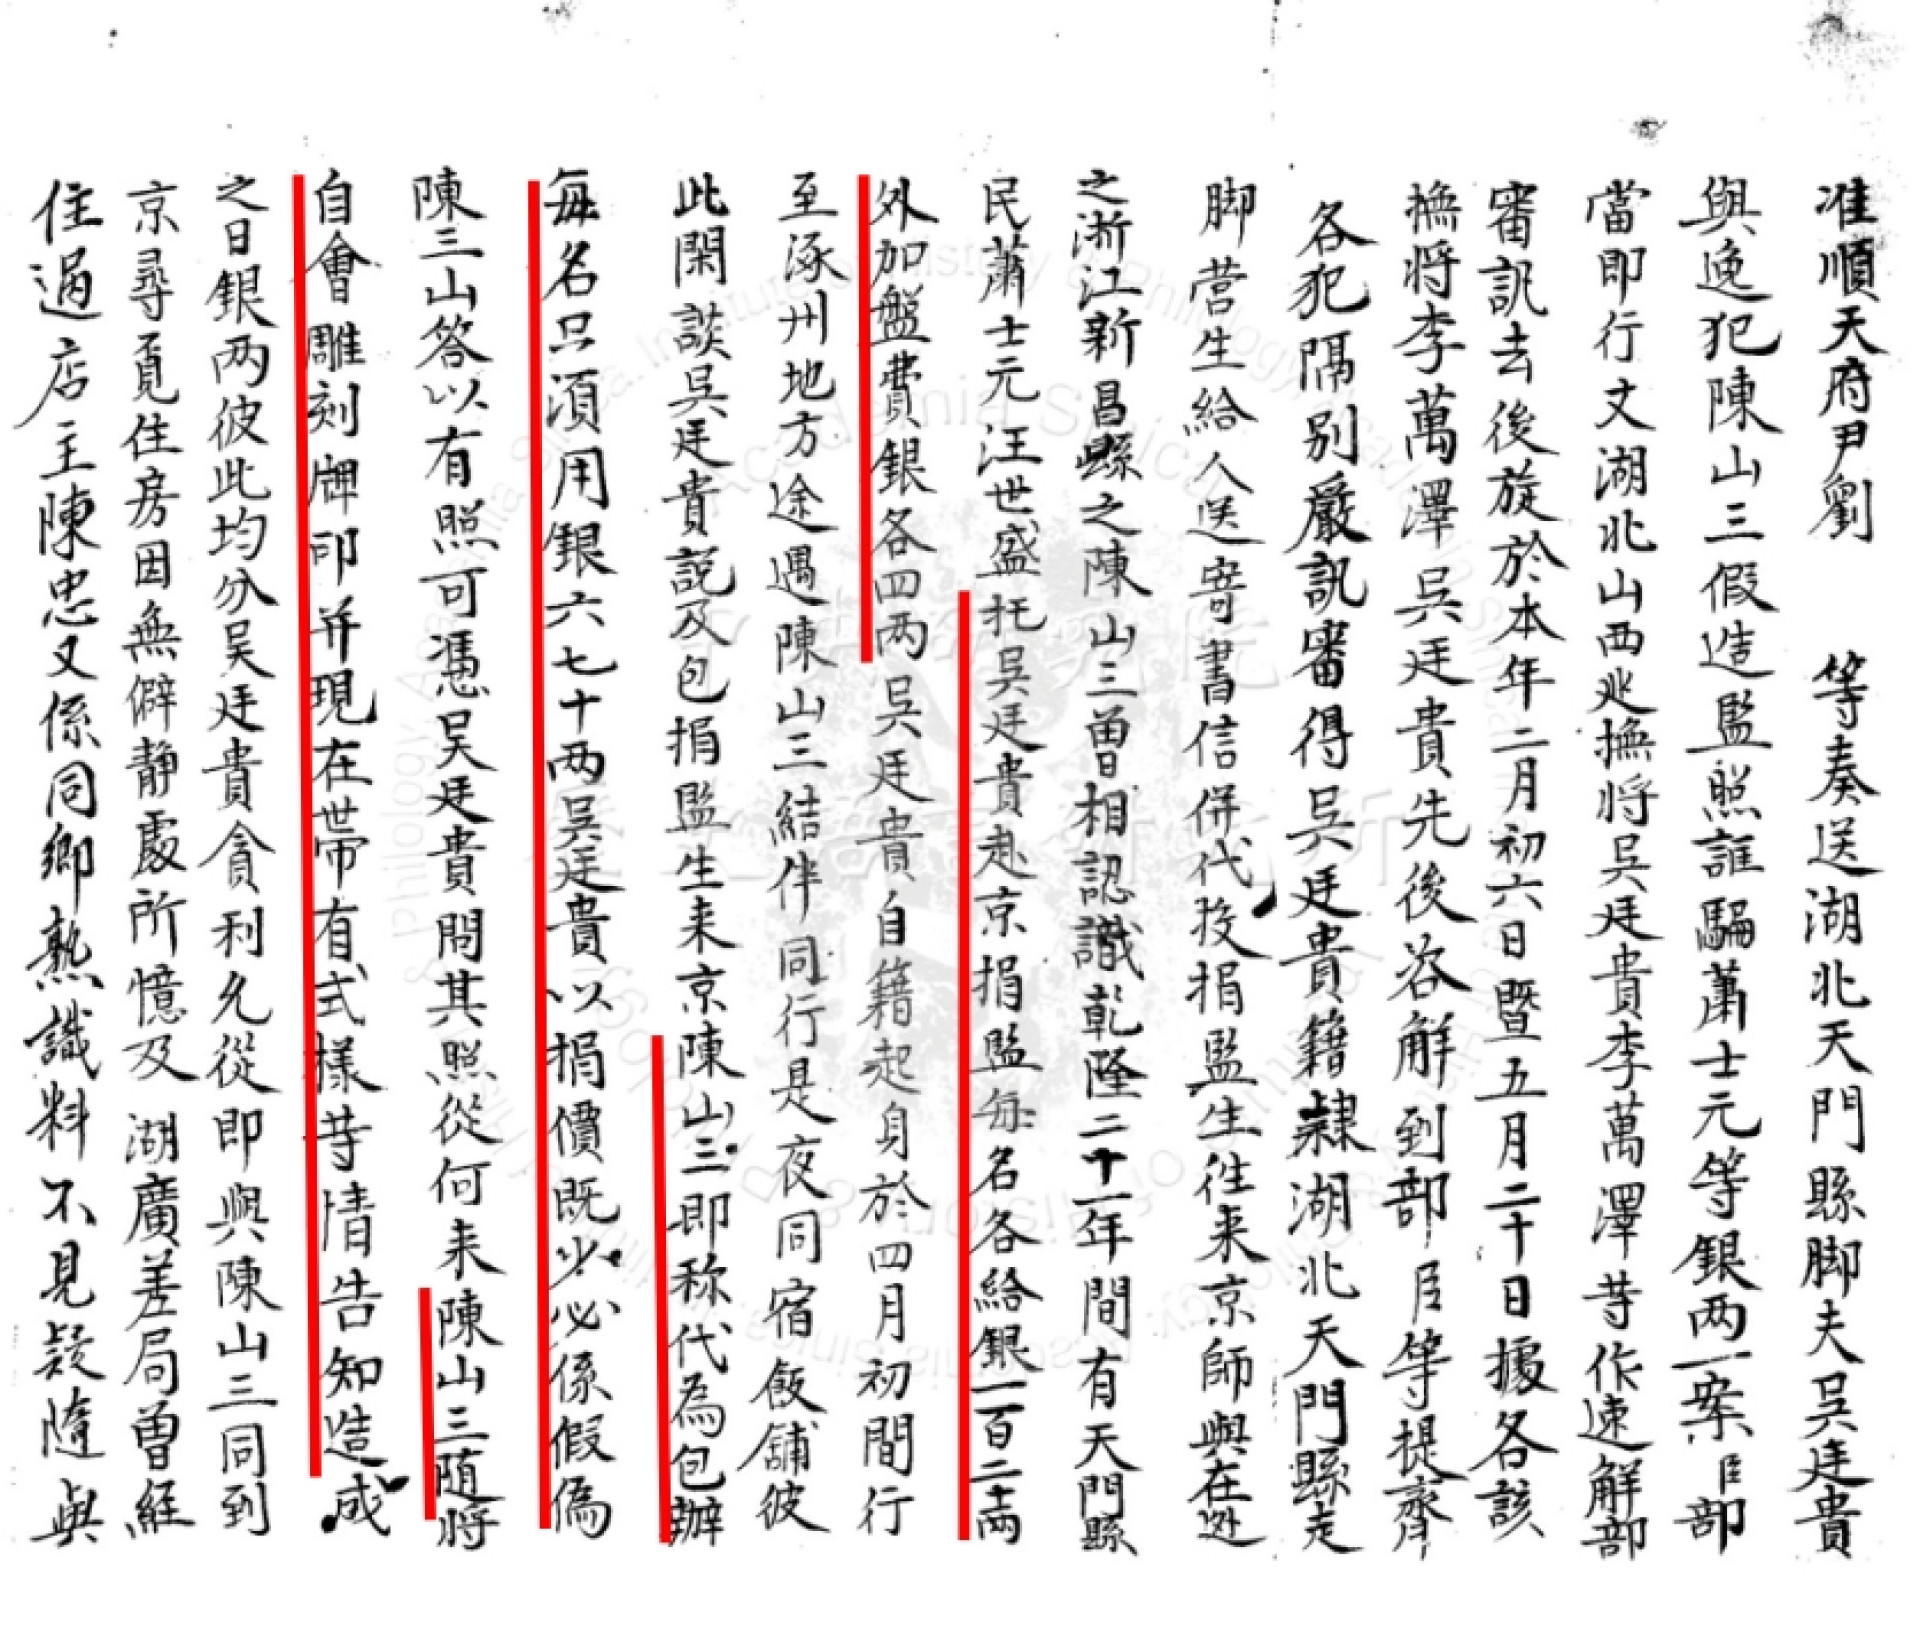 准順天府尹劉　等奏送湖北天門縣脚夫吳廷貴
與逸犯陳山三假造監照誆騙蕭士元等銀两一案臣部
當即行文湖北山西巡撫將吳廷貴李萬澤等作速解部
審訊去後旋於本年二月初六日暨五月二十日據各該
撫將李萬澤吳廷貴先後咨解到部臣等提齊
各犯隔别嚴訊審得吳廷貴籍隸湖北天門縣走
脚营生給人送寄書信併代投捐監生徃来京師與在逃
之浙江新昌縣之陳山三曽相認識乾隆二十一年間有天門縣
民蕭士元汪世盛托吳廷貴赴京捐監每名各給銀一百二十两
外加盤費銀各四两吳廷貴自籍起身於四月初間行
至涿州地方途遇陳山三結伴同行是夜同宿飯舖彼
此閑談吳廷貴説及包捐監生来京陳山三即称代為包辦
每名只須用銀六七十两吳廷貴以捐價既少必係假偽
陳三山答以有照可憑吳廷貴問其照從何来陳山三随將
自會雕刻牌印并現在世帶有式樣等情告知造成
之日銀两彼此均分吳廷貴貪利允從即與陳山三同到
京尋覓住房因無僻静處所憶及湖廣差局曽經
住過店主陳忠又係同鄉熟識料不見疑隨與